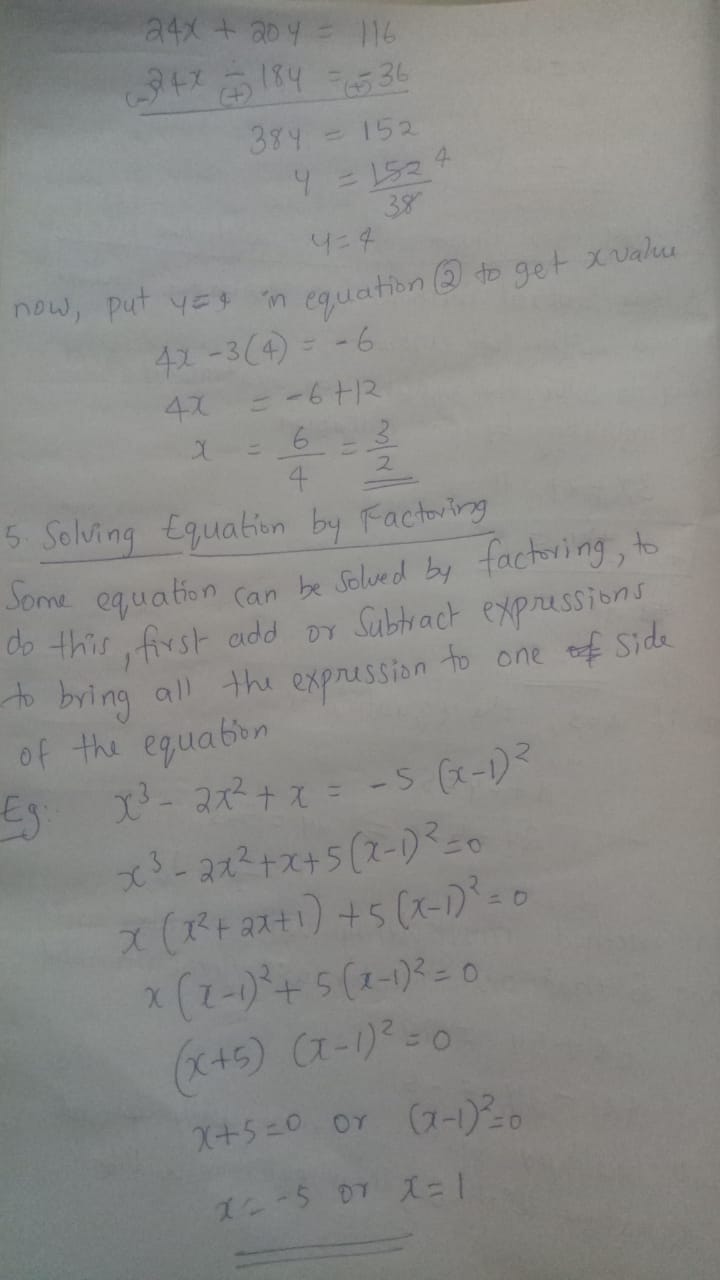 24x + 20y = 116
(-)24x - (+) 18y = (+)-36
38y = 152
y = 152/38 4
y=4
now, put y=4 in equation ② to get x value
4x -3(4) = -6
4x = -6+12
x = 6/4 = 3/2
5. Solving Equation by Factoring
Some equation can be Solved by factoring, to
do this, first add or Subtract expressions
to bring all the expression to one of side
of the equation
Eg: x³ - 2x² + x = -5 (x-1)²
x³ - 2x² + x + 5(x-1)² = 0
x (x² + 2x + 1) + 5 (x-1)² = 0
x (x-1)² + 5 (x-1)² = 0
(x+5) (x-1)² = 0
x+5=0 or (x-1)²=0
x = -5 or x=1